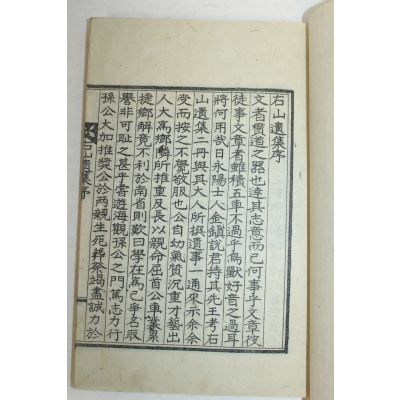 右山遺集序
文者貫道之器也達其志意而已何事乎文章彼
徒事文章者雖積五車不過乎鳥獸好音之過耳
將何用哉日永陽士人金鎭說君持其先王考右
山遺集二冊與其大人所撰遺事一通來示余余
受而按之不覺敬服也公自幼氣質沉重才藝出
人大爲鄕隣所推重及長以親命屈首公車業累
捷鄕解竟不利於南省則歎曰學在爲己爭名取
譽非可恥之甚乎雲遊海觀孫公之門篤志力行
孫公大加推奬公於两親生死葬祭竭盡誠力於
右山遺集序